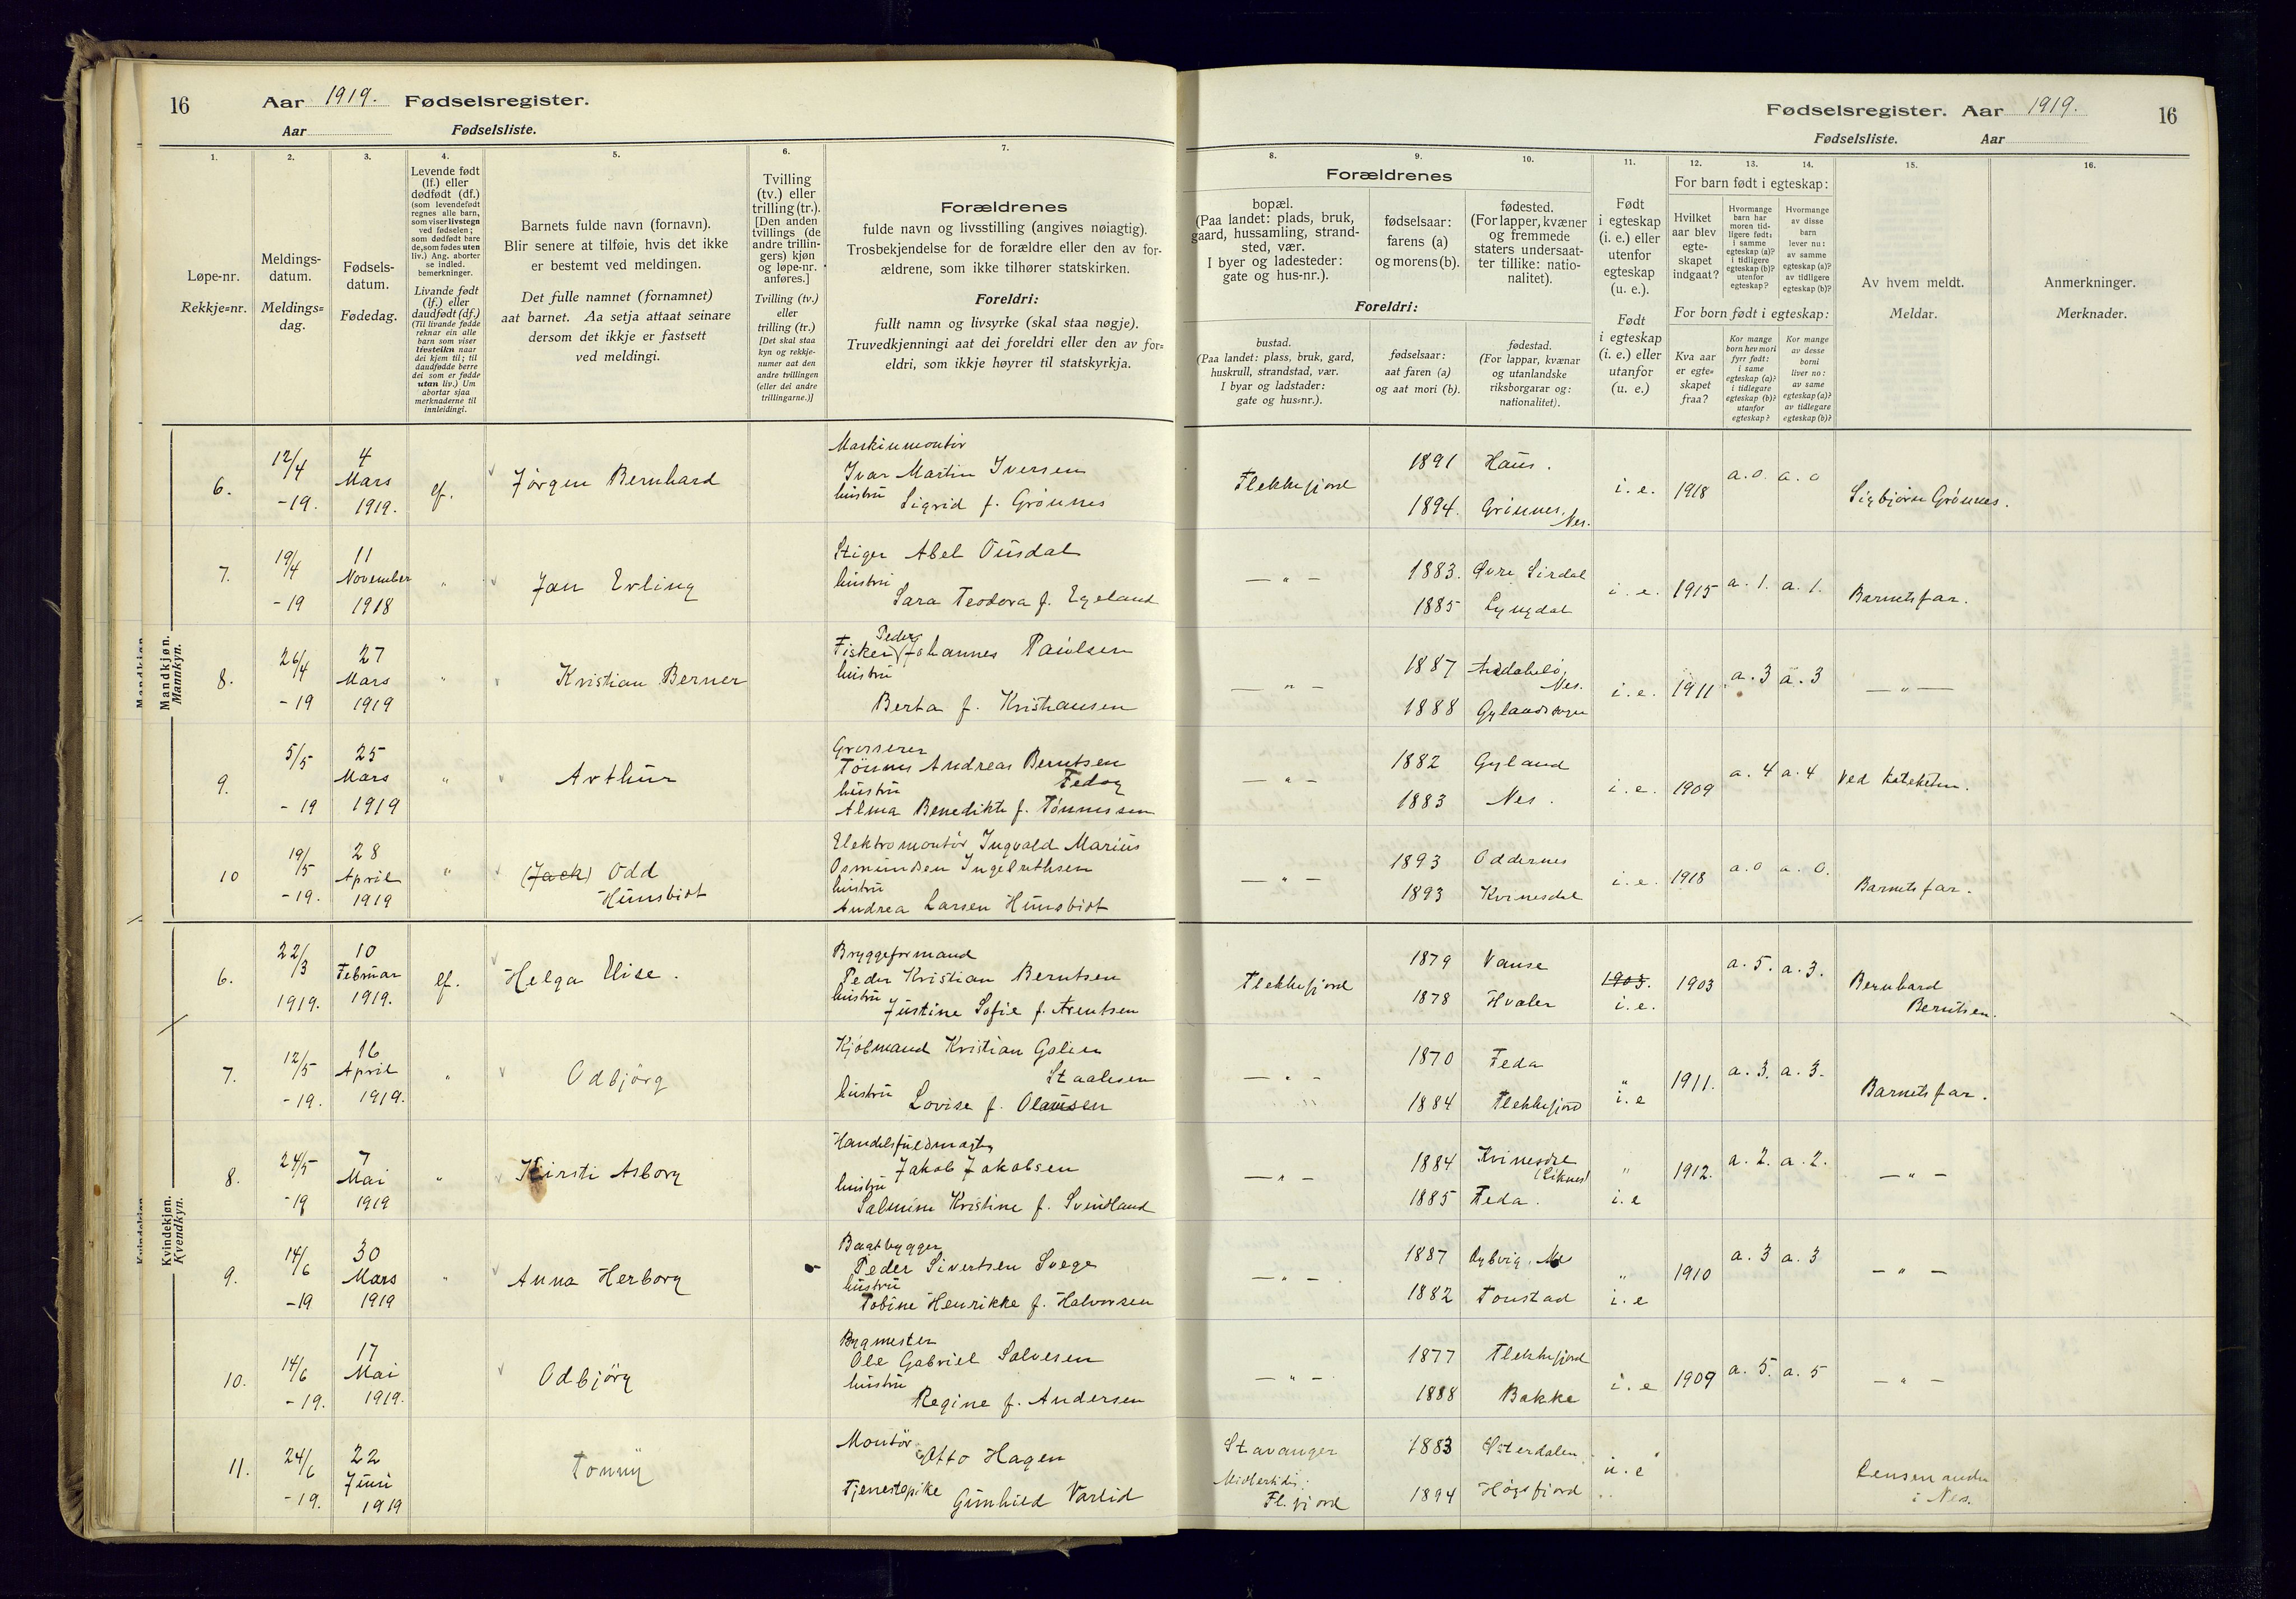 16
Aar 1919. Fødselsregister.
Aar Fødselsliste.
Fødselsregister. Aar 1919.
16
Fødselsliste. Aar
1.
Løpe-nr.
Rekkje=nr.
2.
Meldings-
datum.
Meldings=
dag.
3.
Fødsels-
datum.
Fødedag.
4.
Levende født
(lf.) eller
dødfødt (df.)
(som levendefødt
regnes alle barn,
som viser livstegn
ved fødselen;
som dødfødt bare
de, som fødes uten
liv.) Ang. aborter
se indled.
bemerkninger.
Livande født
(lf.) eller
daudfødt (df.)
(Til livande fødde
reknar ein alle
barn som viser
livsteikn naar
dei kjem til; til
daudfødde berre
dei som er fødde
utan liv.) Um
abortar sjaa
merknaderne til
innleidingi.
5.
Barnets fulde navn (fornavn).
Blir senere at tilføie, hvis det ikke
er bestemt ved meldingen.
Det fulle namnet (fornamnet)
aat barnet. Aa setja attaat seinare
dersom det ikkje er fastsett
ved meldingi.
6.
Tvilling
(tv.) eller
trilling (tr.).
[Den anden
tvillings (de
andre trillin-
gers) kjøn
og løpe-nr.
anføres.]
Tvilling (tv.)
eller
trilling (tr.)
[Det skal staa
kyn og rekkje-
numer aat den
andre tvillingen
(eller dei andre
trillingarne.)]
7.
Forældrenes
fulde navn og livsstilling (angives nøiagtig).
Trosbekjendelse for de forældre eller den av for-
ældrene, som ikke tilhører statskirken.
Foreldri:
fullt namn og livsyrke (skal staa nøgje).
Truvedkjenningi aat dei foreldri eller den av for=
eldri, som ikkje høyrer til statskyrkja.
8.
Forældrenes
bopæl.
(Paa landet: plads, bruk,
gaard, hussamling, strand-
sted, vær.
I byer og ladesteder:
gate og hus-nr.).
Foreldri:
bustad.
(Paa landet: plass, bruk, gard,
huskrull, strandstad, vær.
I byar og ladstader:
gate og hus=nr.).
9.
fødselsaar:
farens (a)
og morens (b).
fødselsaar:
aat faren (a)
og aat mori (b).
10.
fødested.
(For lapper, kvæner
og fremmede
staters undersaat-
ter tillike: natio-
nalitet).
fødestad.
(For lappar, kvænar
og utanlandske
riksborgarar og:
nationalitet).
11.
Født
i egteskap
(i. e.) eller
utenfor
egteskap
(u. e.).
Født
i egteskap
(i. e.) eller
utanfor
(u. e.)
12. 13. 14.
For barn født i egteskap:
Hvilket
aar blev
egte-
skapet
indgaat?
Hvormange
barn har
moren tid-
ligere født:
i samme
egteskap (a)?
i tidligere
egteskap (b)?
utenfor
egteskap?
Hvormange
av disse
barn
lever nu:
av samme
egteskap (a)?
av tidligere
egteskap (b)?
For born født i egteskap:
Kva aar
er egte=
skapet
fraa?
Kor mange
born hev mori
fyrr født:
i same
egteskap (a)?
i tidlegare
egteskap (b)?
utanfor
egteskap?
Kor mange
av desse
borni
liver no:
av same
egteskap (a)?
av tidlegare
egteskap (b)?
15.
Av hvem meldt.
Meldar.
16.
Anmerkninger.
Merknader.
Mandkjøn.
Mannkyn.
6. 12/4 -19. 4 Mars 1919. lf. Jørgen Bernhard
Maskinmontör
Ivar Martin Iversen
hustru
Sigrid f. Grönnes
Flekkefjord 1891 Haus. 1894. Grönnes, Nes. i. e. 1918 a. 0. a. 0 Sigbjörn Grönnes.
7. 19/4 -19 11 November 1918 " Jan Erling
Stiger Abel Ousdal
hustru
Sara Teodora f. Egeland
— " — 1883. Øvre Sirdal 1885 Lyngdal i. e. 1915 a. 1. a. 1. Barnets far.
8. 26/4 -19 27 Mars 1919 " Kristian Berner
Peder
Fisker Johannes Paulsen
hustru
Berta f. Kristiansen
— " — 1887 Andabelö, Nes. 1888 Gylandsogn i. e. 1911 a. 3 a. 3 — " —
9. 5/5 -19 25 Mars 1919 " Arthur
Grosserer
Tönnes Andreas Berntsen
Fedog
hustru
Alma Benedikte f. Tönnessen
— " — 1882 Gyland 1883 Nes. i. e. 1909 a. 4 a. 4 Ved Kateketen.
10 19/5 -19. 28 April 1919 " (Jack) Odd
Hunsbidt
Elektromontör Ingvald Marius
Osmundsen Ingebrethsen
hustru
Andrea Larsen Hunsbidt
— " — 1893 Oddernes 1893 Kvinesdal i. e. 1918 a. 0 a. 0. Barnets far.
Kvindekjøn.
Kvendkyn.
6. 22/3 1919. 10 Februar 1919. lf. Helga Elise.
Bryggeformand
Peder Kristian Berntsen
hustru
Justine Sofie f. Arentsen
Flekkefjord 1879 Vanse 1878 Hvaler 1903. i. e. 1903 a. 5. a. 3. Bernhard
Berntsen.
7. 12/5 -19. 16 April 1919. " Odbjörg
Kjöbmand Kristian Galien
Staalesen
hustru
Lovise f. Olausen
— " — 1870 Feda 1884 Flekkefjord " i. e 1911. a. 3. a. 3. Barnets far.
8. 24/5 -19 7 Mai 1919 " Kirsti Asborg
Handelsfuldmægtig
Jakob Jakobsen
hustru
Salmine Kristine f. Svindland
— " — 1884 Kvinesdal (Liknes) 1885 Feda. " i. e 1912. a. 2. a. 2. — " —
9. 14/6 -19 30 Mars 1919 " Anna Herborg
Baatbygger
Peder Sivertsen Svege
hustru
Tobine Henrikke f. Halvorsen
— " — 1887 1882 Tonstad " i. e 1910 a. 3 a. 3 — " —
10. 14/6 -19. 17 Mai 1919. Odbjörg
Bygmester
Ole Gabriel Salvesen
hustru
Regine f. Andersen
— " — 1877 Flekkefjord 1888 Bakke i. e 1909 a. 5. a. 5 — " —
11. 24/6 -19. 22 Juni 1919 Tonny
Montör
Otto Hagen
Tjenestepike Gunhild Varlid
Stavanger
Midlertidig:
Fl. fjord
1883 Østerdalen 1894 Högsfjord u. e Lensmanden
i Nes.